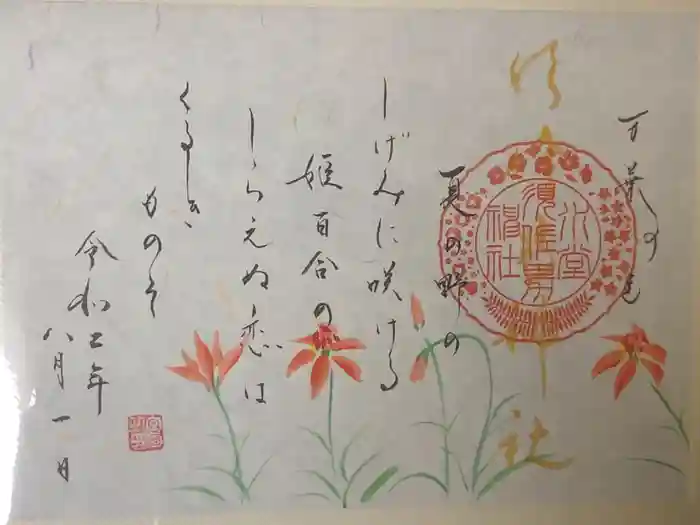 万葉の花
水堂
須佐男
神社
夏の野の
しげみに咲ける
姫百合の
しらえぬ恋は
くるしき
ものそ
令和二年
八月一日